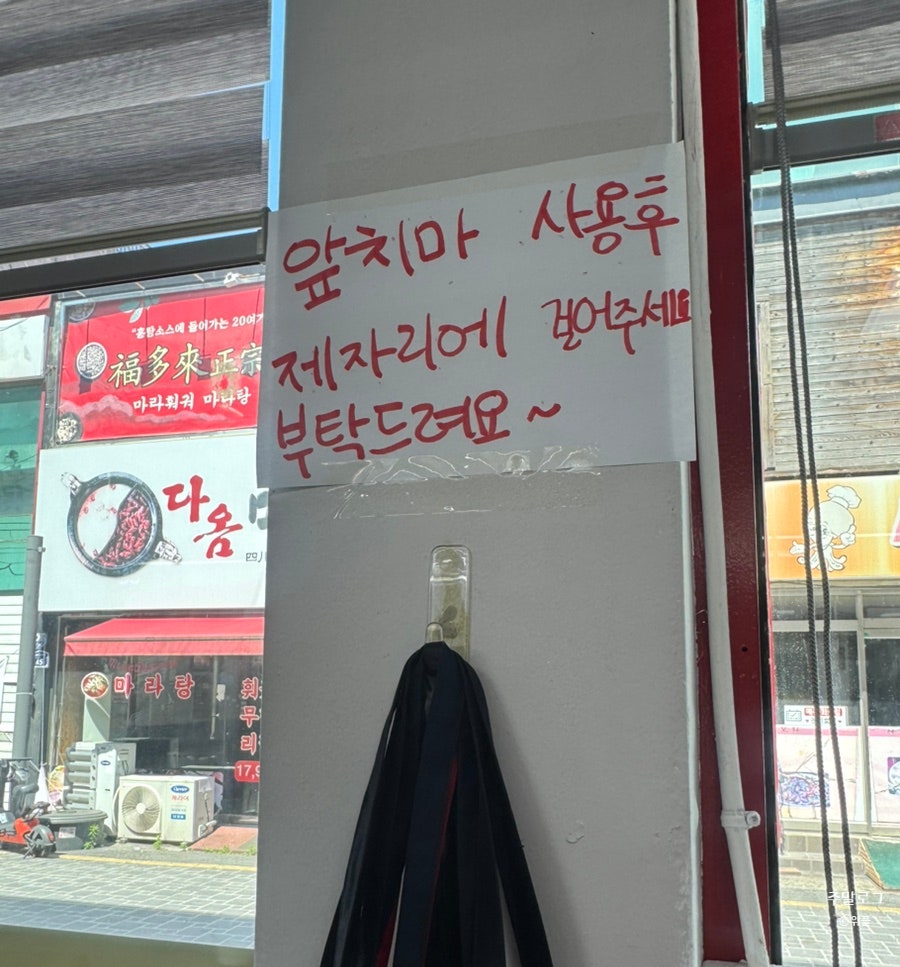 앞치마 사용후
제자리에 걸어주세요
부탁드려요~
"홍탕소스에 들어가는 20여가
福多來正宗
마라훠궈 마라탕
다옴
四川
마라탕
훠
무
리
17,9
Carrier